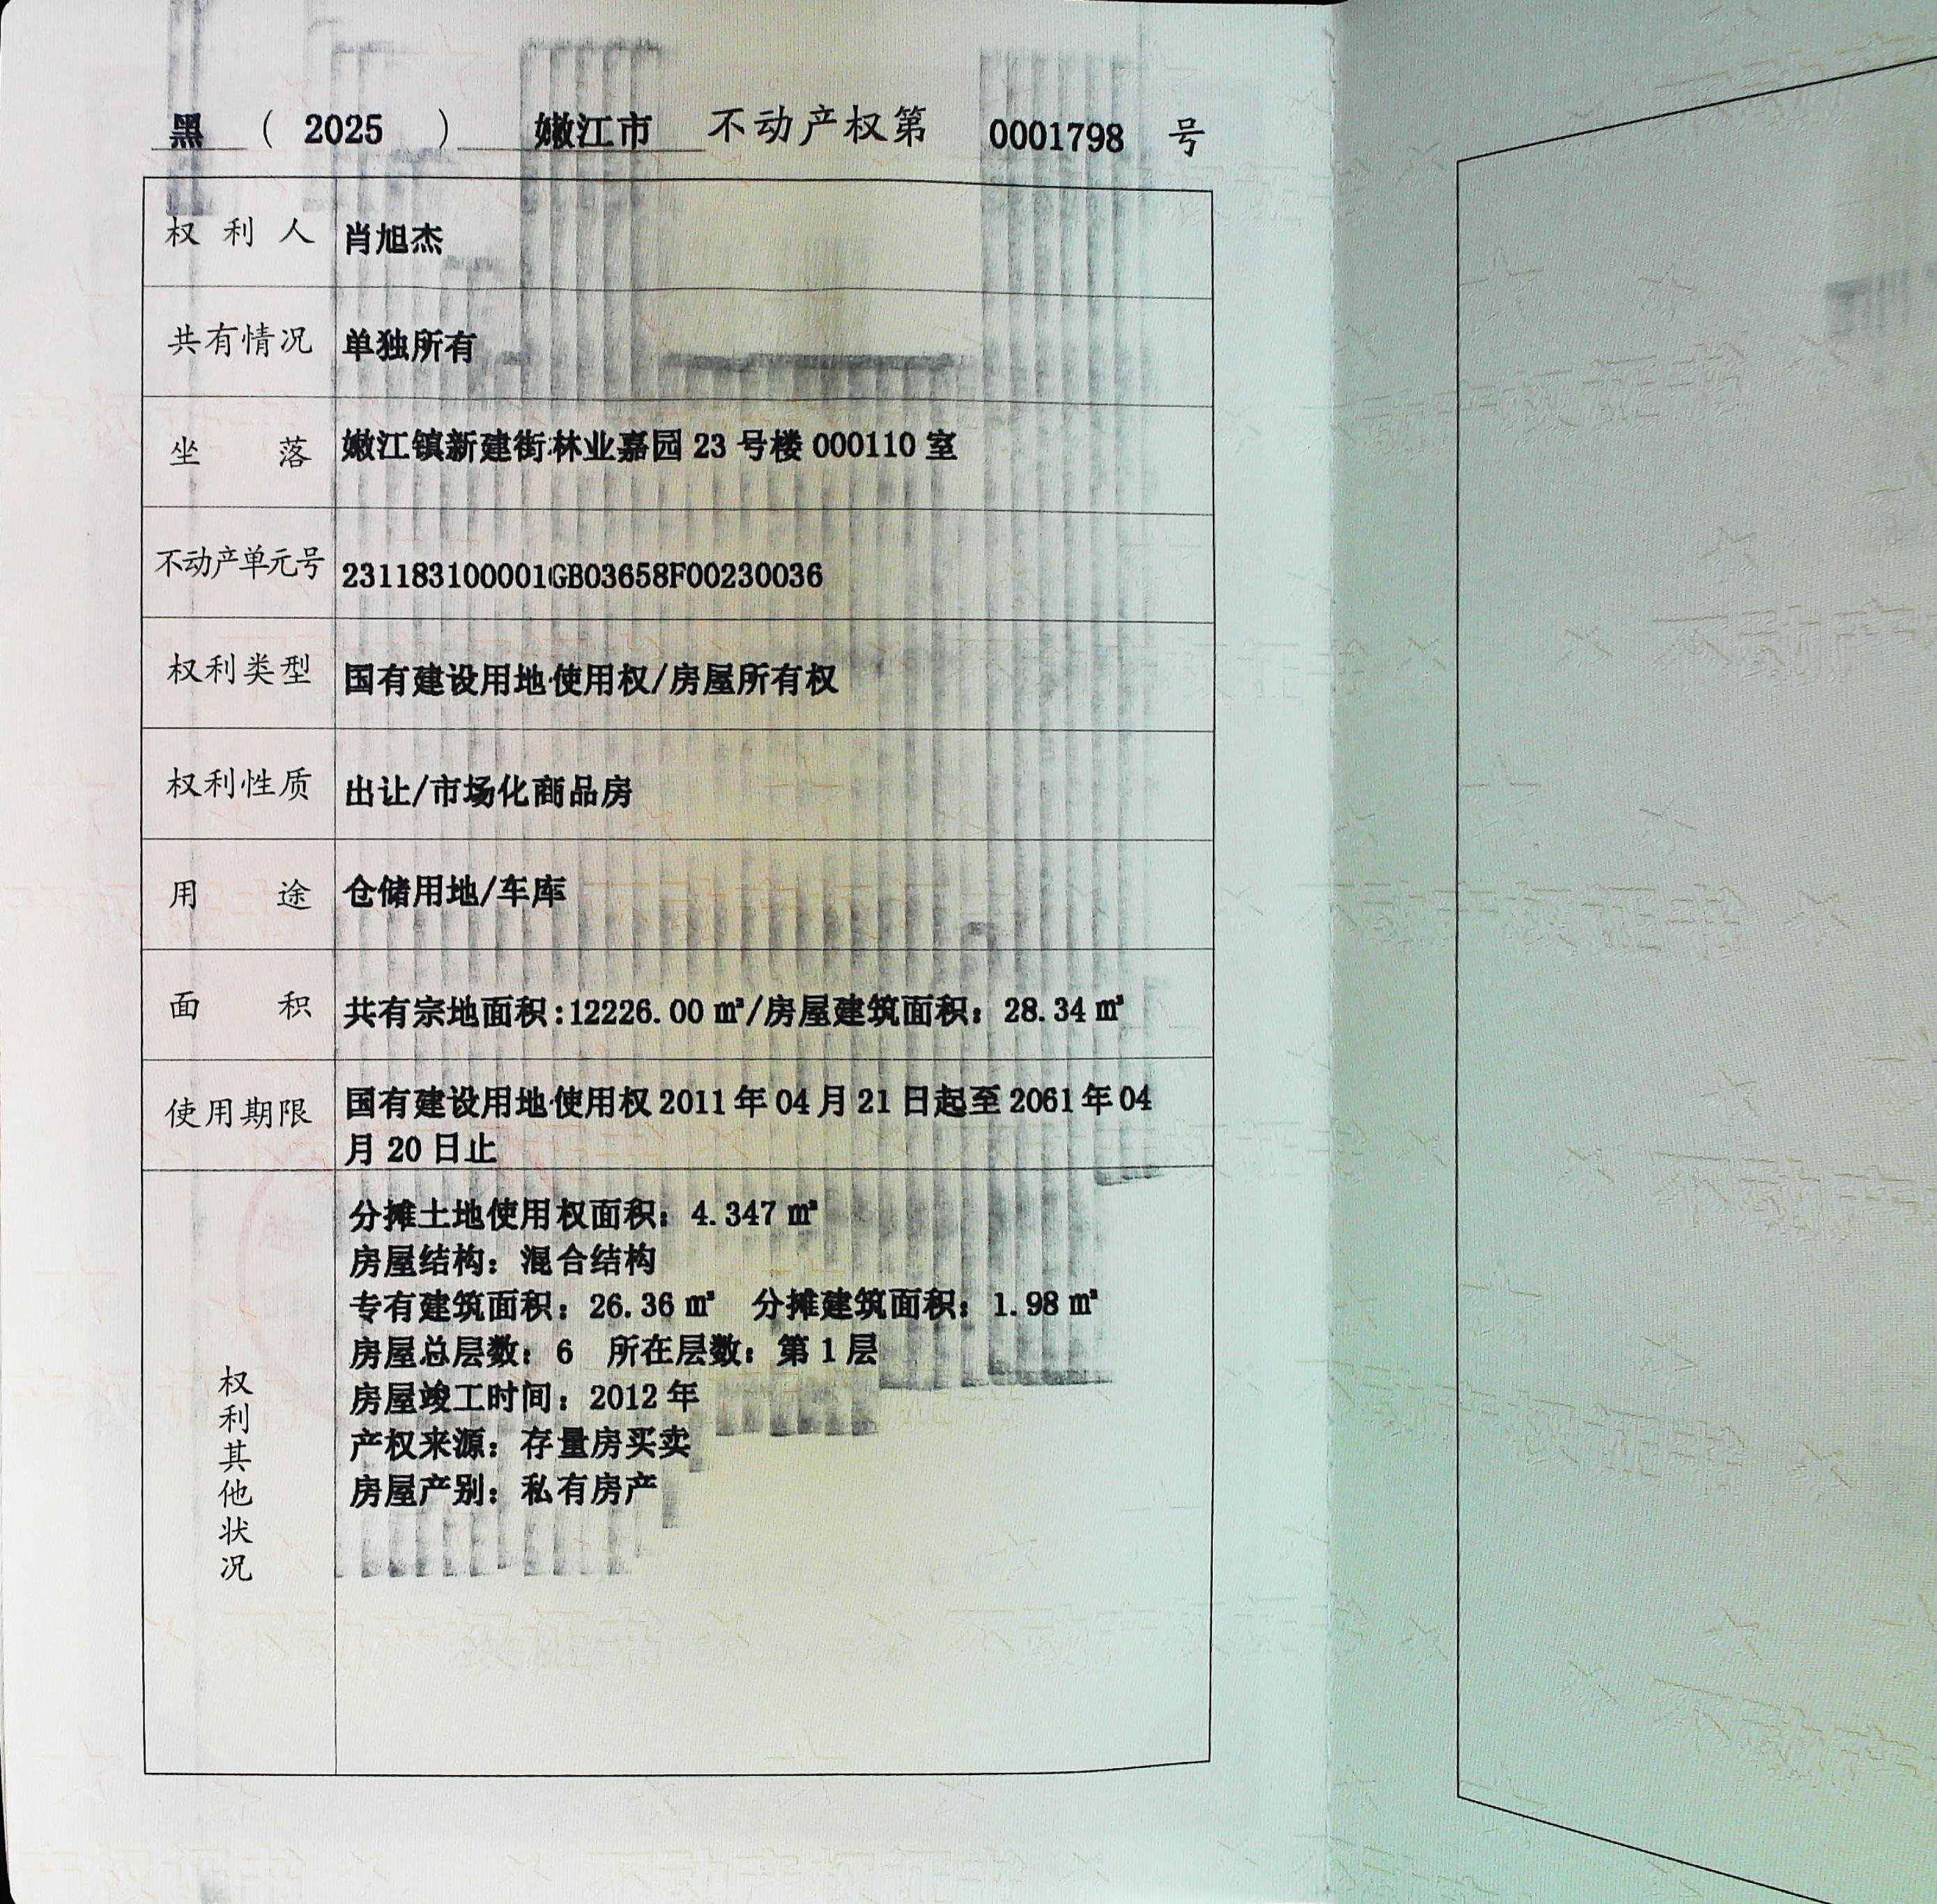 黑 ( 2025 ) 嫩江市 不动产权第 0001798 号
权利人 肖旭杰
共有情况 单独所有
坐落 嫩江镇新建街林业嘉园 23 号楼 000110 室
不动产单元号 231183100001GB03658F00230036
权利类型 国有建设用地使用权/房屋所有权
权利性质 出让/市场化商品房
用途 仓储用地/车库
面积 共有宗地面积:12226.00 ㎡/房屋建筑面积：28.34 ㎡
使用期限 国有建设用地使用权 2011 年 04 月 21 日起至 2061 年 04
月 20 日止
权利其他状况
分摊土地使用权面积：4.347 ㎡
房屋结构：混合结构
专有建筑面积：26.36 ㎡ 分摊建筑面积：1.98 ㎡
房屋总层数：6 所在层数：第 1 层
房屋竣工时间：2012 年
产权来源：存量房买卖
房屋产别：私有房产